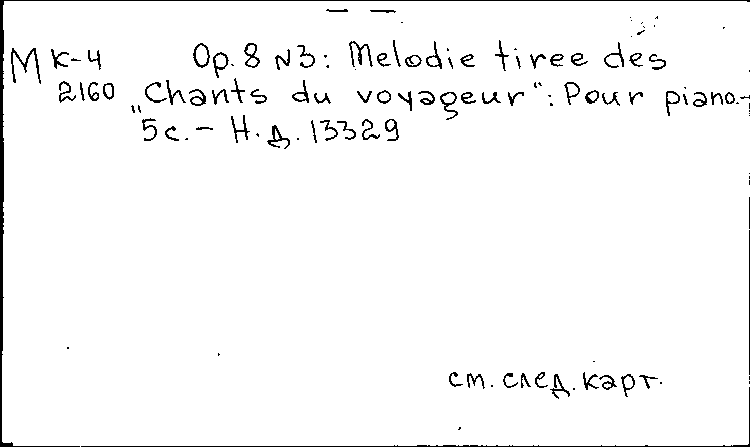 — —
М К-4 Op. 8 N3: Melodie tiree des
2160 „Chants du voyageur": Pour piano.-
5 с. – Н. д. 13329
см. след. карт.